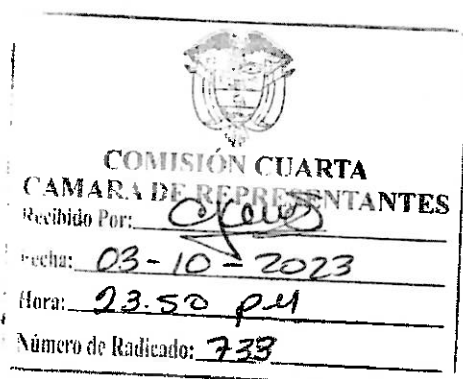 COMISIÓN CUARTA
CAMARA DE REPRESENTANTES
Recibido Por:
Fecha: 03-10-2023
Hora: 23.50 pM
Número de Radicado: 733